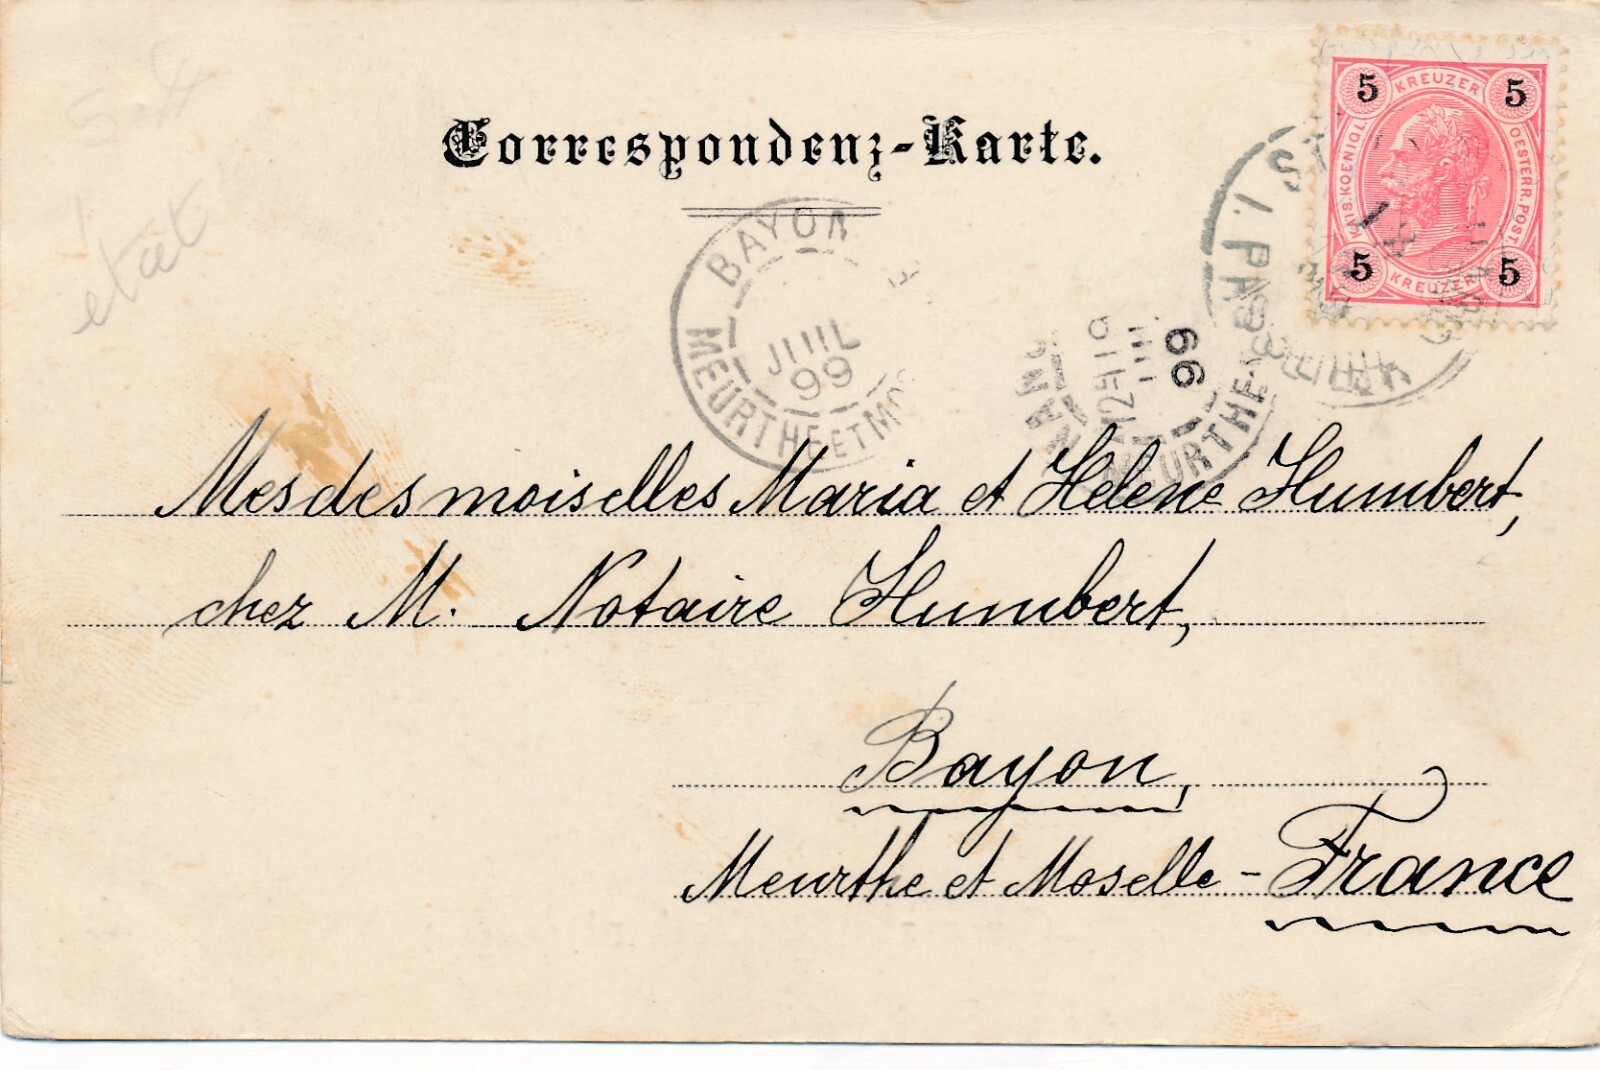 5
état
Correspondenz-Karte.
5 KREUZER 5
KAIS. KOENIGL. OESTERR. POST
5 KREUZER 5
BAYON
JUIL
99
MEURTHE ET MO
99
MEURTHE
Mesdesmoiselles Maria et Hélène Humbert,
chez M. Notaire Humbert,
Bayon,
Meurthe et Moselle - France